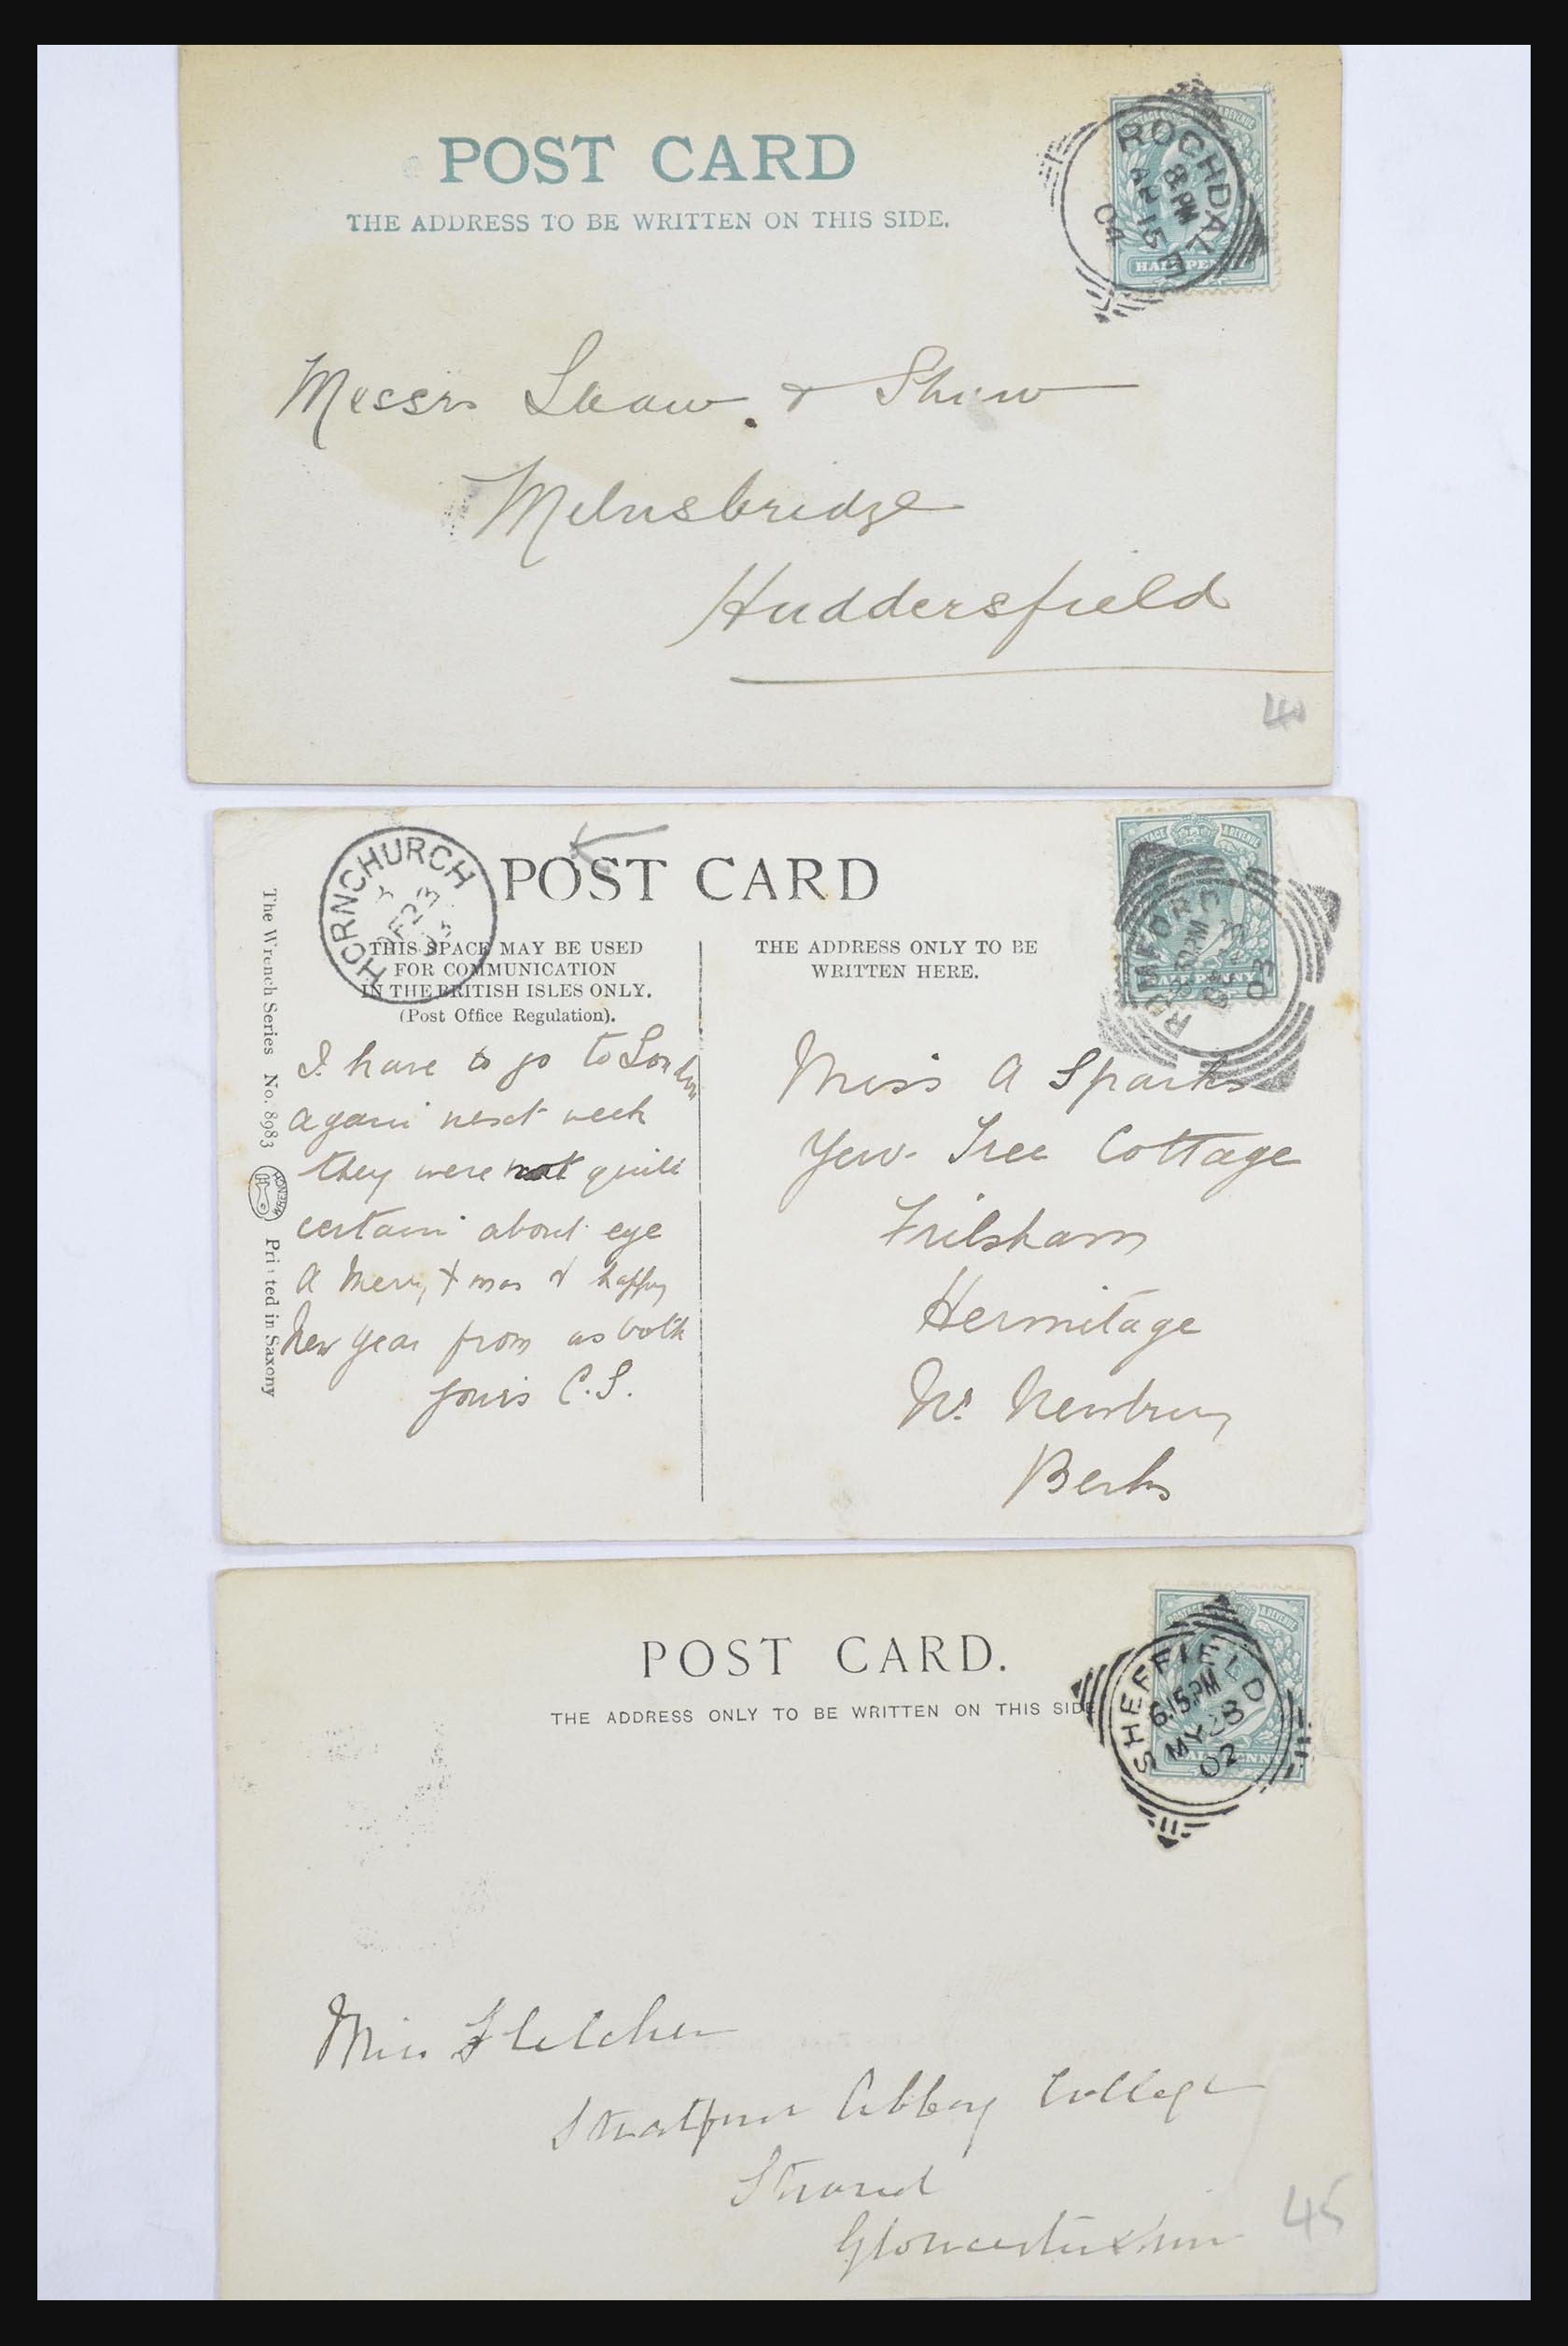 POST CARD
THE ADDRESS TO BE WRITTEN ON THIS SIDE.
ROCHDALE
8 PM
AP 15
04
HALFPENNY
Messrs Shaw & Shaw
Milnsbridge
Huddersfield
40
HORNCHURCH
POST CARD
THIS SPACE MAY BE USED
FOR COMMUNICATION
IN THE BRITISH ISLES ONLY.
(Post Office Regulation).
THE ADDRESS ONLY TO BE
WRITTEN HERE.
POSTAGE & REVENUE
HALF PENNY
ROMFORD
8.30PM
03
The Wrench Series No. 8983
WRENCH
Printed in Saxony
I have to go to London
again next week
they were not quite
certain about eye
A Merry Xmas & happy
New Year from us both
yours C.S.
Miss A Sparks
Yew Tree Cottage
Frilsham
Hermitage
Nr Newbury
Berks
POST CARD.
THE ADDRESS ONLY TO BE WRITTEN ON THIS SIDE
POSTAGE & REVENUE
HALFPENNY
SHEFFIELD
6.15PM
MY 28
02
Miss Fletcher
Abbey College
Stroud
Gloucestershire
45